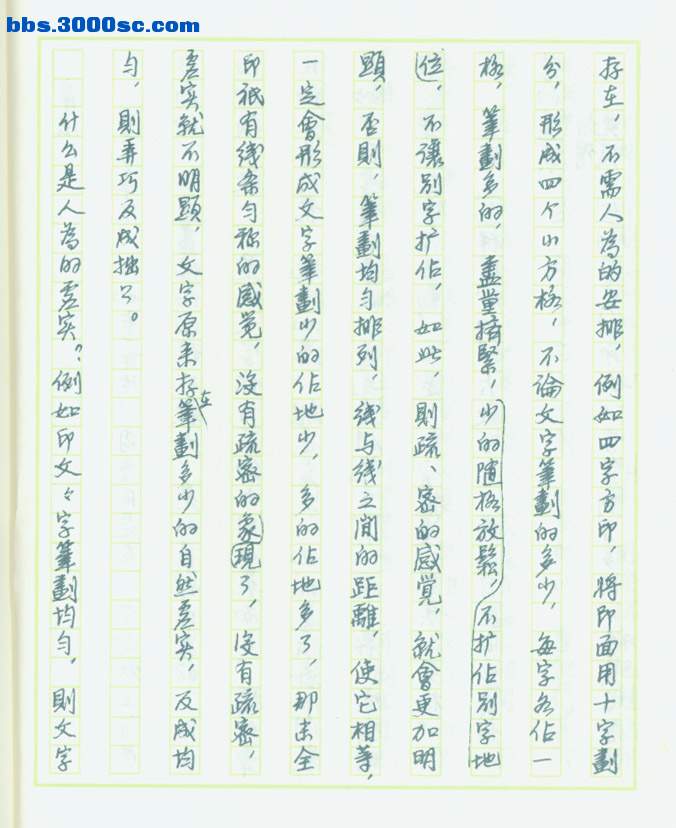 bbs.3000sc.com
存在，不需人為的安排，例如四字方印，將印面用十字劃
分，形成四个小方格，不論文字筆劃的多少，每字各佔一
格，筆劃多的，盡量擠緊，少的随格放鬆，不扩佔别字地
位，不讓别字扩佔，如此，則疏、密的感觉，就會更加明
顯，否則，筆劃均匀排列，线与线之間的距離，使它相等，
一定會形成文字筆劃少的佔地少，多的佔地多了，那末全
印祇有线条匀称的感觉，沒有疏密的象現了，沒有疏密，
虚实就不明顯，文字原来存在筆劃多少的自然虚实，反成均
匀，則弄巧反成拙了。
什么是人為的虚实？例如印文々字筆劃均匀，則文字